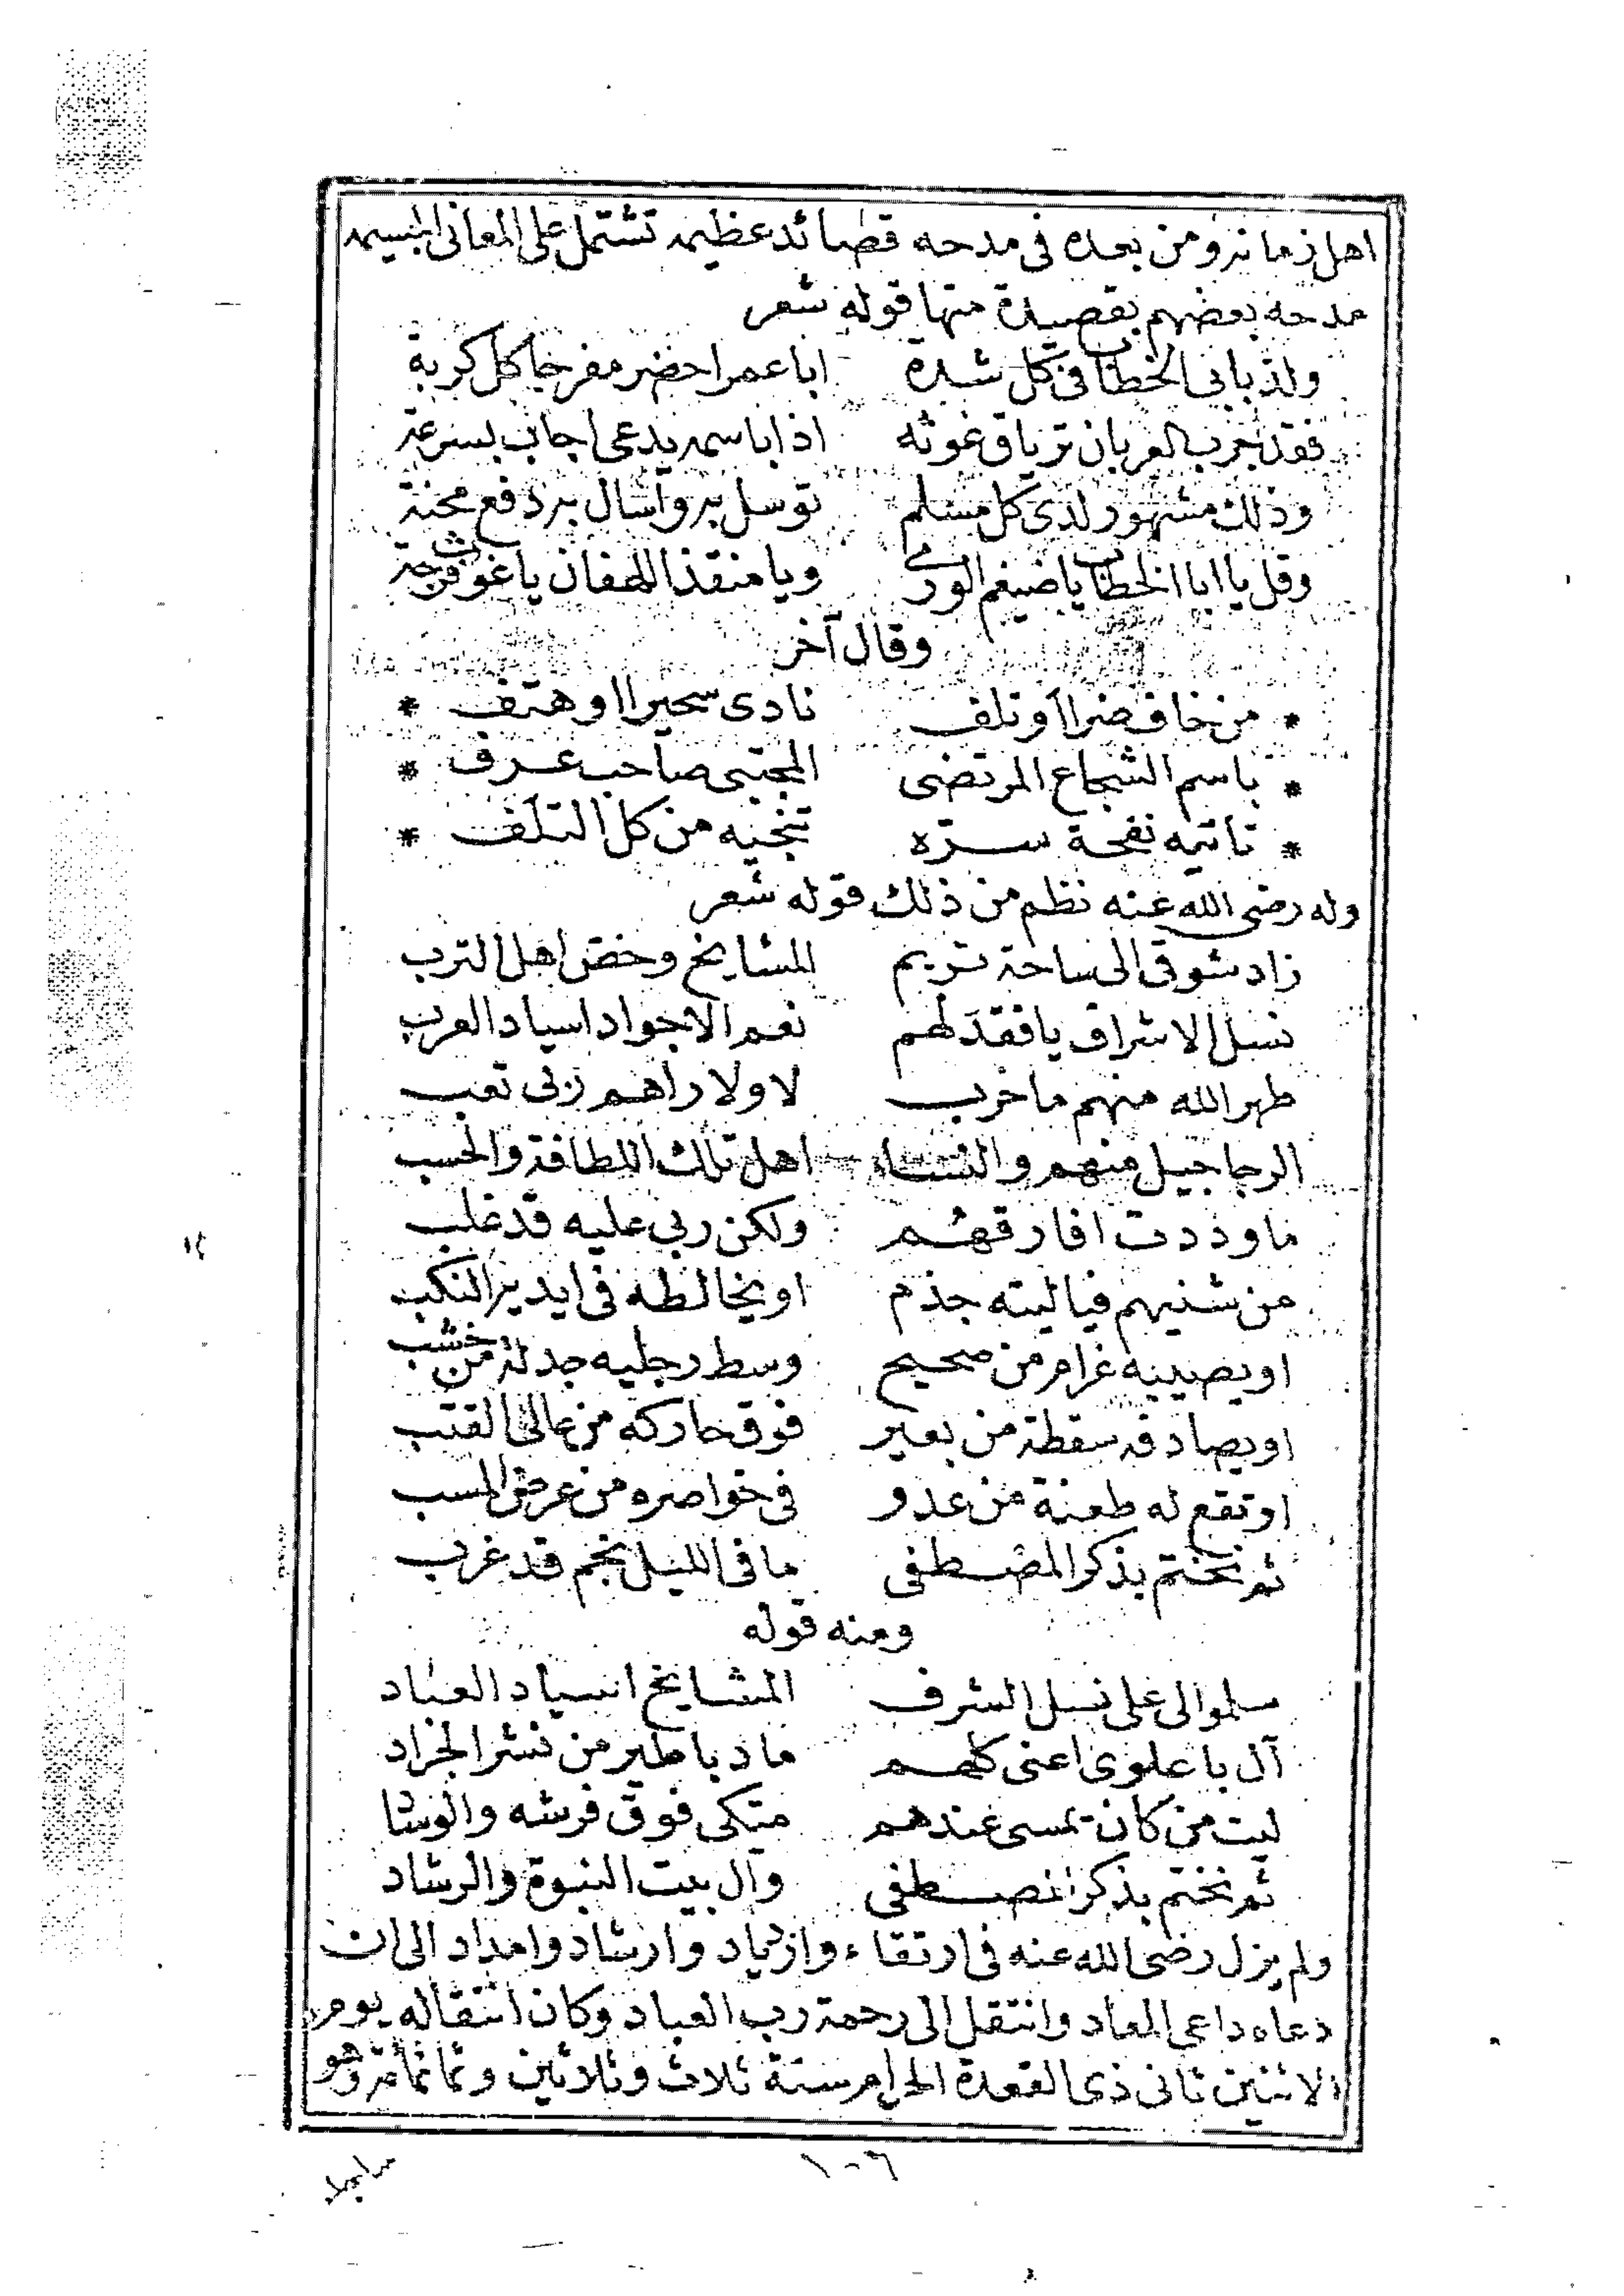 اهل زمانه ومن بعده في مدحه قصائد عظيمه تشتمل على المعاني
مدحه بعضهم بقصيدة منها قوله شعر
ولذ بابى الخطاب فى كل شدة اباعمر احضر مفرجا كل كربة
فقد جرب العربان ترياق غوثه اذا باسمه يدعى اجاب بسرعة
وذلك مشهور لدى كل مسلم توسل به واسال به دفع محنة
وقل يا ابا الخطاب يا ضيغم الورى ويا منقذ اللهفان يا غوث
وقال آخر
* من خاف ضرا او تلف نادى سحيرا او هتف *
* باسم الشجاع المرتضى المجتبى صاحب عرف *
* تاتيه نفحة سره تنجيه من كل التلف *
وله رضى الله عنه نظم من ذلك قوله شعر
زاد شوقى الى ساحة تريم المشايخ وخص اهل الترب
نسل الاشراف يا فقد لهم نعم الاجواد اسياد العرب
طهر الله منهم ما خرب لا ولا راهم زلى تعب
الرجاجيل منهم والنساء اهل تلك اللطافة والحسب
ما وددت افارقهم ولكن ربى عليه قد غلب
من شنيهم فياليته جذم او يخالطه فى ايديه النكب
او يصيبه غرام من صحيح وسط رجليه جدلة من خشب
او يصادفه سقطة من بعير فوق حاركه من عالى القتب
او تقع له طعنة من عدو فى خواصره من عرض المسب
ثم نختم بذكر المصطفى ما فى الليل نجم قد غرب
ومنه قوله
سلموا لى على نسل الشرف المشايخ اسياد العباد
آل باعلوى اعنى كلهم ما دبا طير من نشر الجراد
ليت من كان يمسى عندهم متكى فوق فرشه والوساد
ثم نختم بذكر المصطفى وآل بيت النبوة والرشاد
ولم يزل رضى الله عنه فى ارتقاء وازدياد وارشاد وامداد الى ان
دعاه داعى المعاد وانتقل الى رحمة رب العباد وكان انتقاله يوم
الاثنين ثانى ذى القعدة الحرام سنة ثلاث وثلاثين وثمانمائة وهو
١٠٦